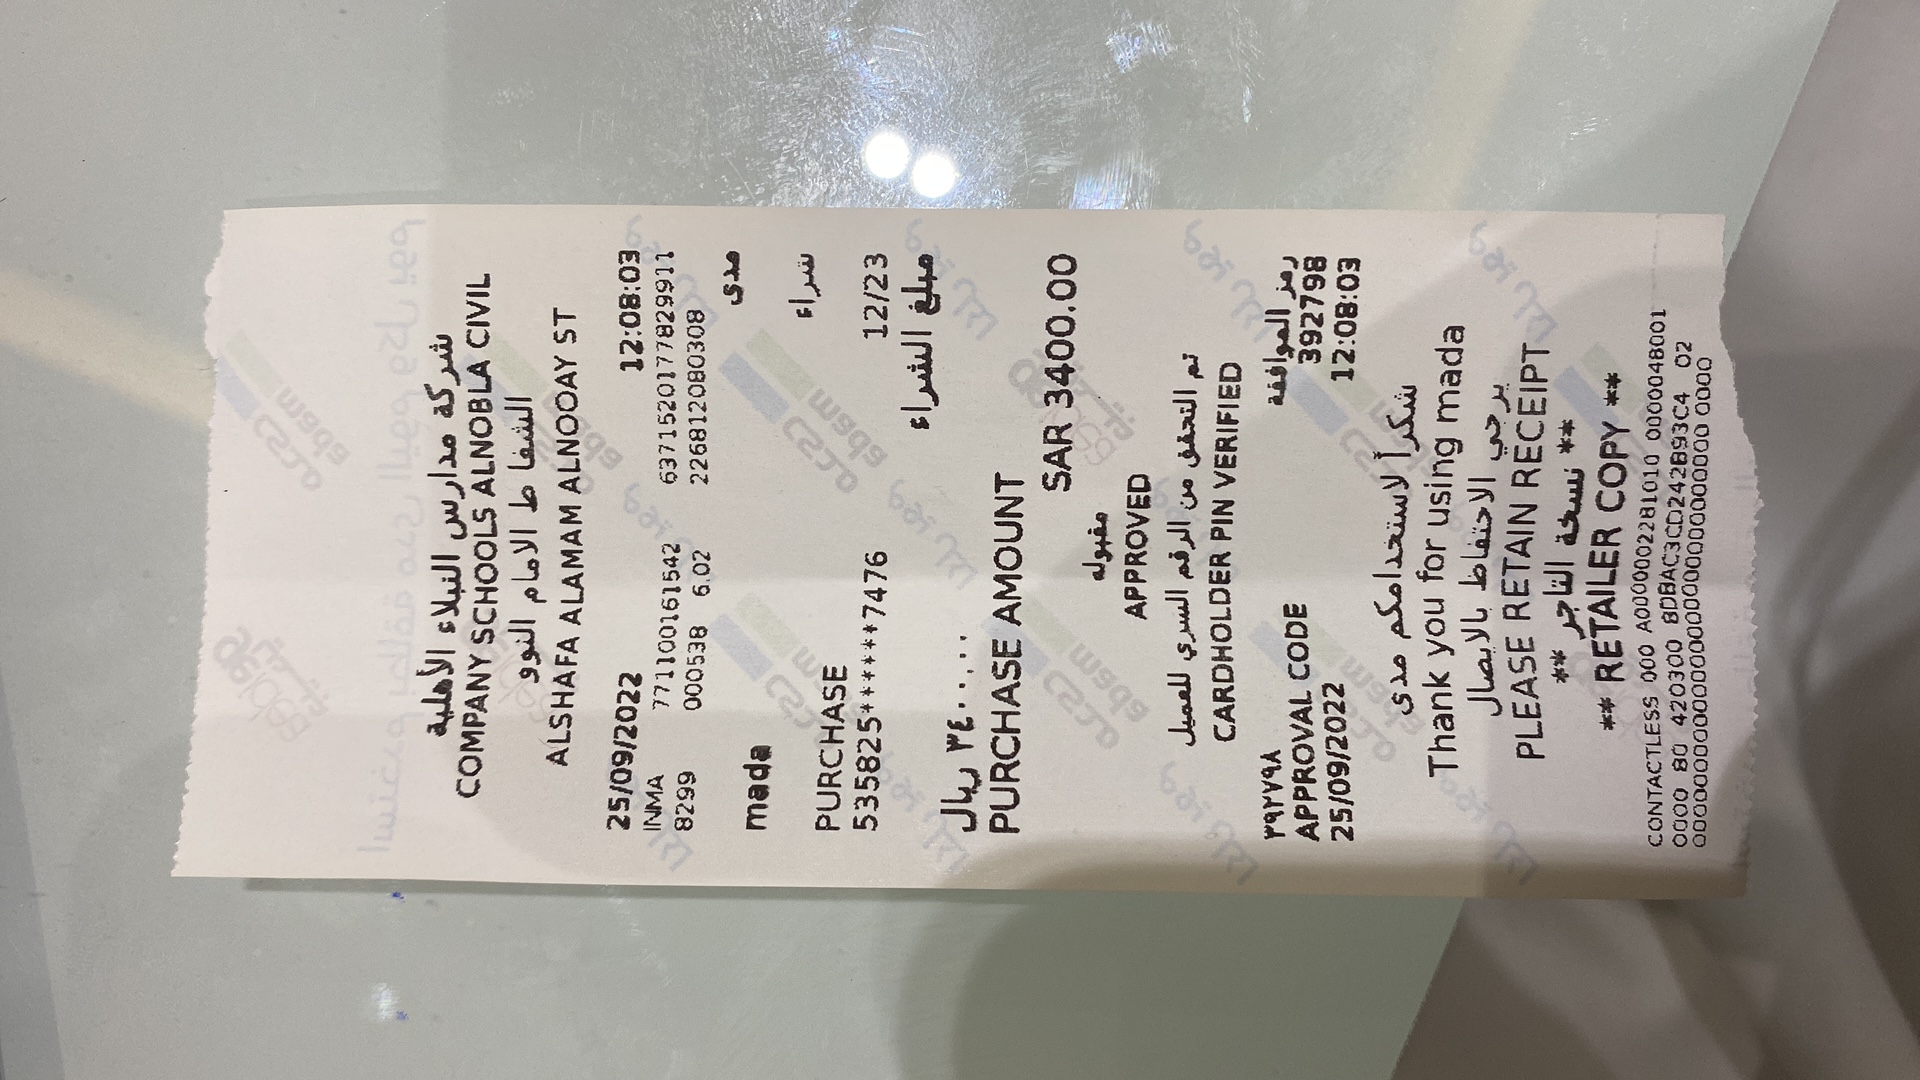 شركة مدارس النبلاء الأهلية
COMPANY SCHOOLS ALNOBLA CIVIL
الشفا ط الامام النوو
ALSHAFA ALAMAM ALNOOAY ST
25/09/2022 12:08:03
INMA 771100161542 637152017782991​1
8299 000538 6.02 226812080308
mada مدى
PURCHASE شراء
535825******7476 12/23
مبلغ الشراء ٣٤٠٠.٠٠ ريال
PURCHASE AMOUNT
SAR 3400.00
مقبوله
APPROVED
تم التحقق من الرقم السري للعميل
CARDHOLDER PIN VERIFIED
رمز الموافقة ٣٩٢٧٩٨
APPROVAL CODE 392798
25/09/2022 12:08:03
شكراً لاستخدامكم مدى
Thank you for using mada
يرجي الاحتفاظ بالايصال
PLEASE RETAIN RECEIPT
** نسخة التاجر **
** RETAILER COPY **
CONTACTLESS 000 A0000002281010 0000048001
0000 80 420300 8DBAC3CD242B93C4 02